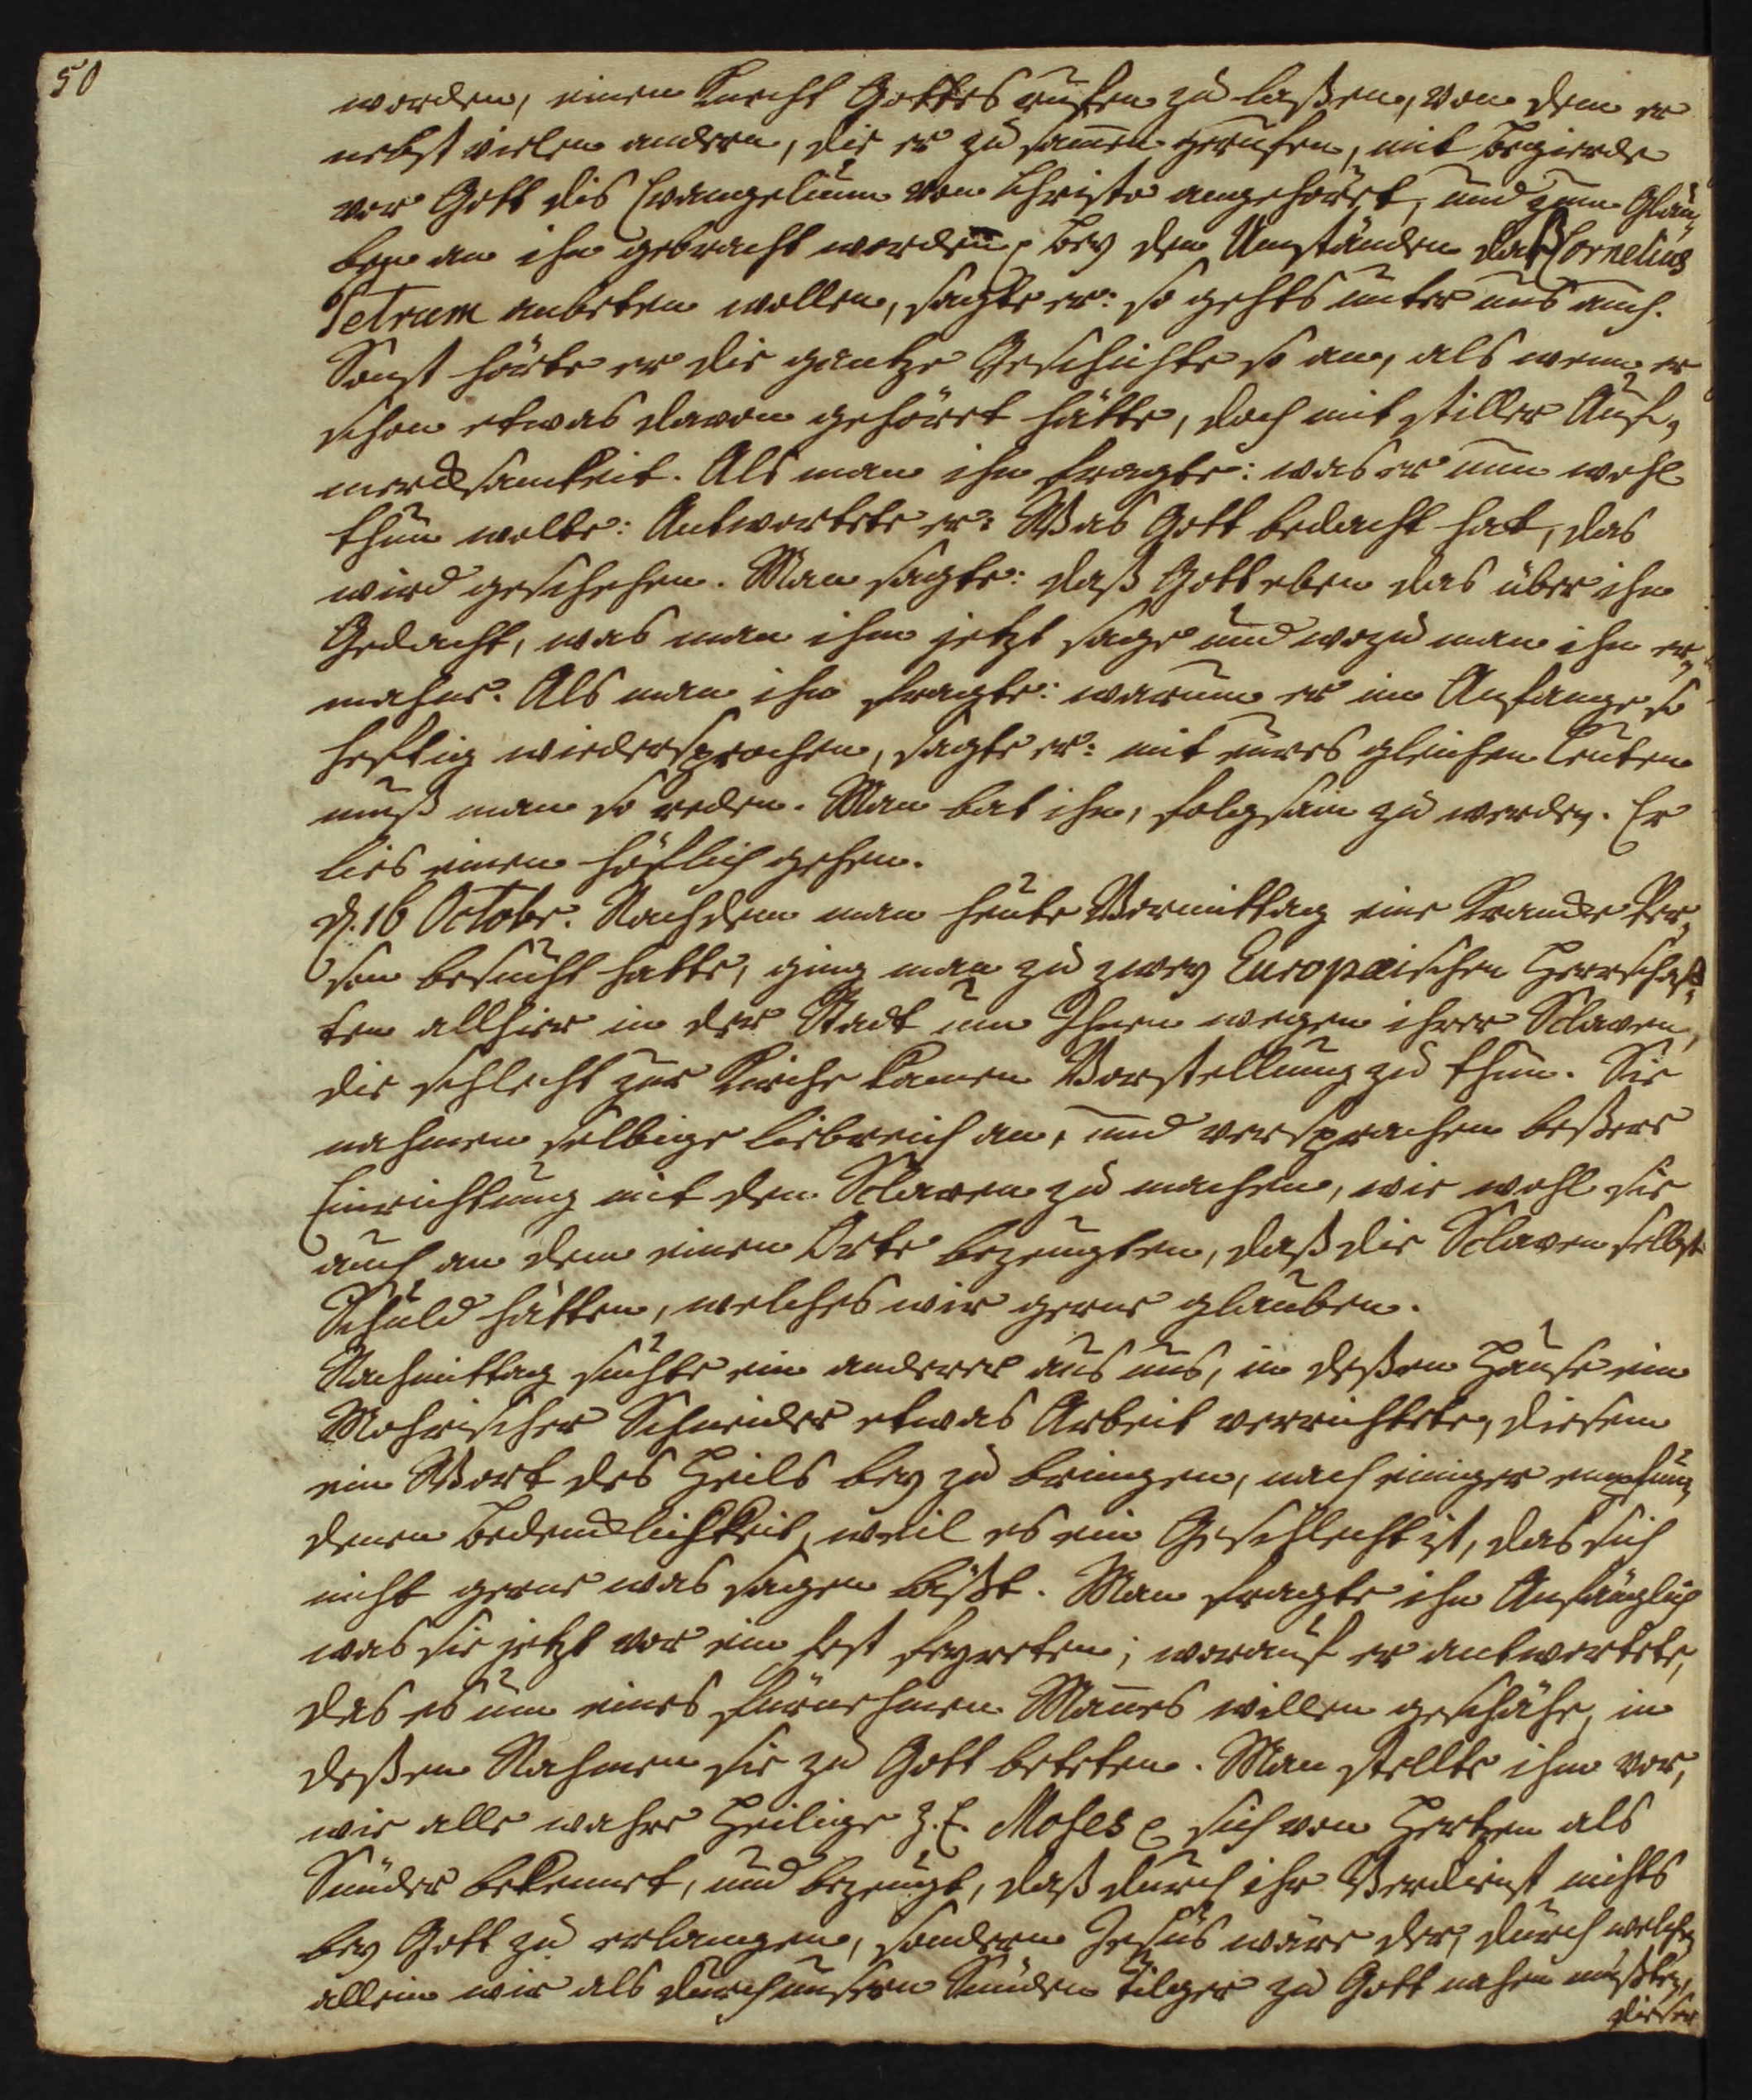 50
worden, einen Knecht Gottes rufen zu laßen, von dem er
nebst vielen andern, die er zusam̄en gerufen, mit Begierde
vor Gott dis Evangelium von Christo angehöret, und zum Glau-
ben an ihn gebracht worden. Bey den Umständen daß Cornelius
Petrum anbeten wollen, sagte er: so gehts unter uns auch.
Sonst hörte er die gantze Geschichte so an, als wenn er
schon etwas davon gehöret hätte, doch mit stiller Auf-
mercksamkeit. Als man ihn fragte: was er nun wohl
thun wolte: Antwortete er: Was Gott bedacht hat, das
wird geschehen. Man sagte: daß Gott eben das über ihn
Gedacht, was man ihm jetzt sage und wozu man ihn er-
mahne. Als man ihn fragte: warum er im Anfange so
heftig wiedersprochen, sagte er: mit eures gleichen Leuten
muß man so reden. Man bat ihn, folgsam zu werden. Er
lies einen höflich gehen.
d. 16 Octobr. Nachdem man heute Vormittag eine Krancke Per-
son besucht hatte, ging man zu zwey Europæischen Herrschaf-
ten allhier in der Stadt um Ihnen wegen ihrer Sclaven,
die schlecht zur Kirche kamen Vorstellung zu thun. Sie
nahmen selbige liebreich an, und versprachen beßere
Einrichtung mit den Sclaven zu machen, wie wohl sie
auch an dem einen Orte bezeugten, daß die Sclaven selbst
Schuld hätten, welches wir gerne glauben.
Nachmittag suchte ein anderer aus uns, in deßen Hause ein
Mohrischer Schneider etwas Arbeit verrichtete, diesem
ein Wort des Heils bey zu bringen, nach einiger empfun-
denen Bedencklichkeit, weil es ein Geschlecht ist, das sich
nicht gerne was sagen läßt. Man fragte ihn Anfänglich
was sie jetzt vor ein Fest feyreten; worauf er antwortete,
das es um eines fürnehmen Man̄es willen geschähe, in
deßen Nahmen sie zu Gott beteten. Man stellte ihm vor,
wie alle wahre Heilige z. E. Moses sich von Hertzen als
Sünder bekennet, und bezeugt, daß durch ihr Verdienst nichts
bey Gott zu erlangen, sondern Jesus wäre der, durch welchen
allein wir als durch unsern Sünden Tilger zu Gott nahen müßten,
dieser